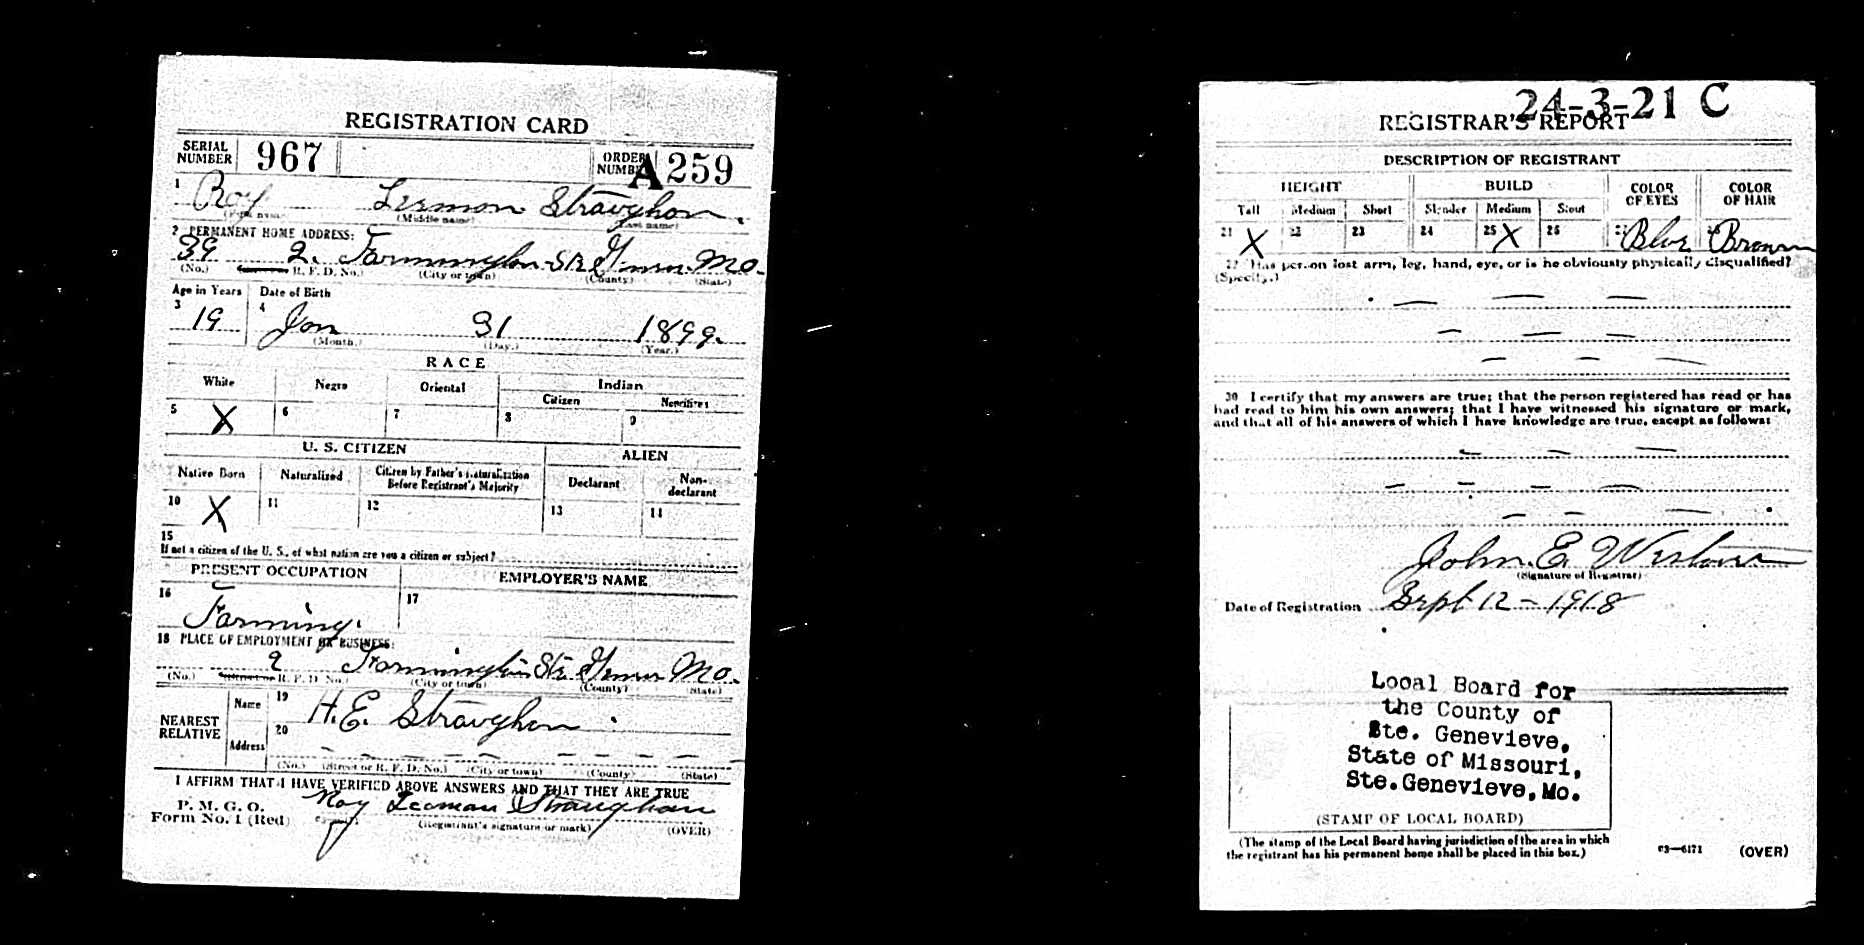 REGISTRATION CARD
SERIAL NUMBER 967 ORDER NUMBER A 259
1 Roy Lermon Straughan.
(First name) (Middle name) (Last name)
2 PERMANENT HOME ADDRESS:
39 2. Farmington Ste Genev. Mo.
(No.) R. F. D. No.) (City or town) (County) (State)
Age in Years Date of Birth
3 19 4 Jan 31 1899.
(Month.) (Day.) (Year.)
RACE
White Negro Oriental Indian
Citizen Noncitizen
5 X 6 7 8 9
U. S. CITIZEN ALIEN
Native Born Naturalized Citizen by Father's Naturalization Before Registrant's Majority Declarant Non-declarant
10 X 11 12 13 14
15
If not a citizen of the U. S., of what nation are you a citizen or subject?
PRESENT OCCUPATION EMPLOYER'S NAME
16 Farming. 17
18 PLACE OF EMPLOYMENT OR BUSINESS:
2 Farmington Ste Genev Mo.
(No.) R. F. D. No.) (City or town) (County) (State)
NEAREST RELATIVE Name 19 H. E. Straughan
Address 20
(No.) (Street or R. F. D. No.) (City or town) (County) (State)
I AFFIRM THAT I HAVE VERIFIED ABOVE ANSWERS AND THAT THEY ARE TRUE
P. M. G. O.
Form No. 1 (Red) Roy Leaman Straughan
(Registrant's signature or mark) (OVER)
24-3-21 C
REGISTRAR'S REPORT
DESCRIPTION OF REGISTRANT
HEIGHT BUILD COLOR OF EYES COLOR OF HAIR
Tall Medium Short Slender Medium Stout
21 X 22 23 24 25 X 26 27 Blue 28 Brown
29 Has person lost arm, leg, hand, eye, or is he obviously physically disqualified?
(Specify.)
30 I certify that my answers are true; that the person registered has read or has
had read to him his own answers; that I have witnessed his signature or mark,
and that all of his answers of which I have knowledge are true, except as follows:
John E
(Signature of Registrar)
Date of Registration Sept 12 - 1918
Local Board for
the County of
Ste. Genevieve,
State of Missouri,
Ste.Genevieve,Mo.
(STAMP OF LOCAL BOARD)
(The stamp of the Local Board having jurisdiction of the area in which
the registrant has his permanent home shall be placed in this box.)
03—6171 (OVER)